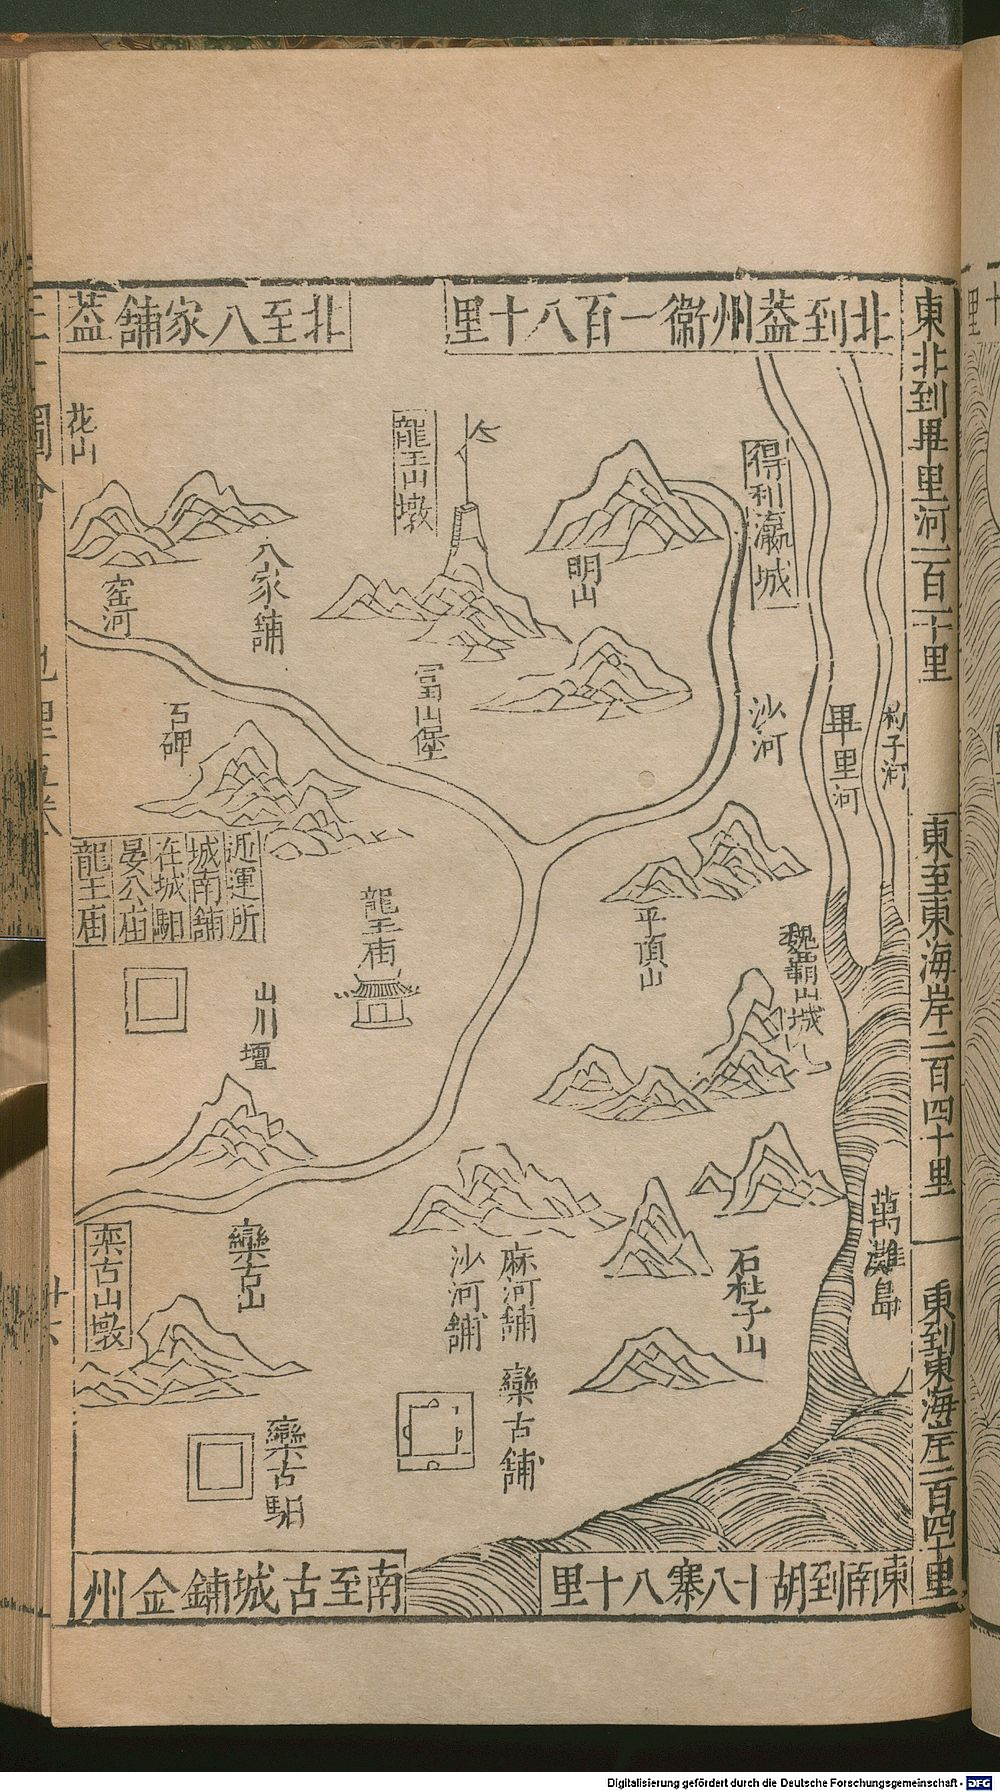 東北到畢里河一百一十里
東至東海岸二百四十里
東到東海岸一百四十里
北到蓋州衛一百八十里
北至八家舖蓋
得利瀛城
明山
龍王山墩
花山
八家舖
窑河
富山堡
沙河
畢里河
石碑
近運所
城南舖
在城馹
晏公庙
龍王庙
龍王庙
山川壇
平頂山
魏霸山城
萬灘島
石杜子山
麻河舖
沙河舖
欒古山
栾古山墩
欒古舖
欒古馹
東南到胡十八寨八十里
南至古城鋪金州
地理五卷
Digitalisierung gefördert durch die Deutsche Forschungsgemeinschaft - DFG